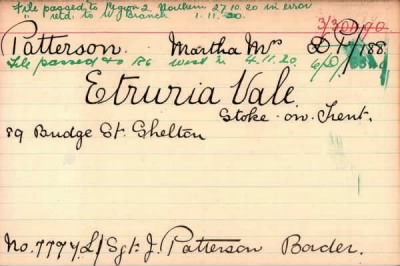 File passed to Region 2. Northern 27.10.20 in error
" retd. to W Branch 1.11.20.
Patterson. Martha Mrs D P/188
File passed to R6 West 4.11.20.
Etruria Vale
Stoke. on. Trent.
89 Budge St. Shelton
No. 7774 L/Sgt. J. Patterson Border.